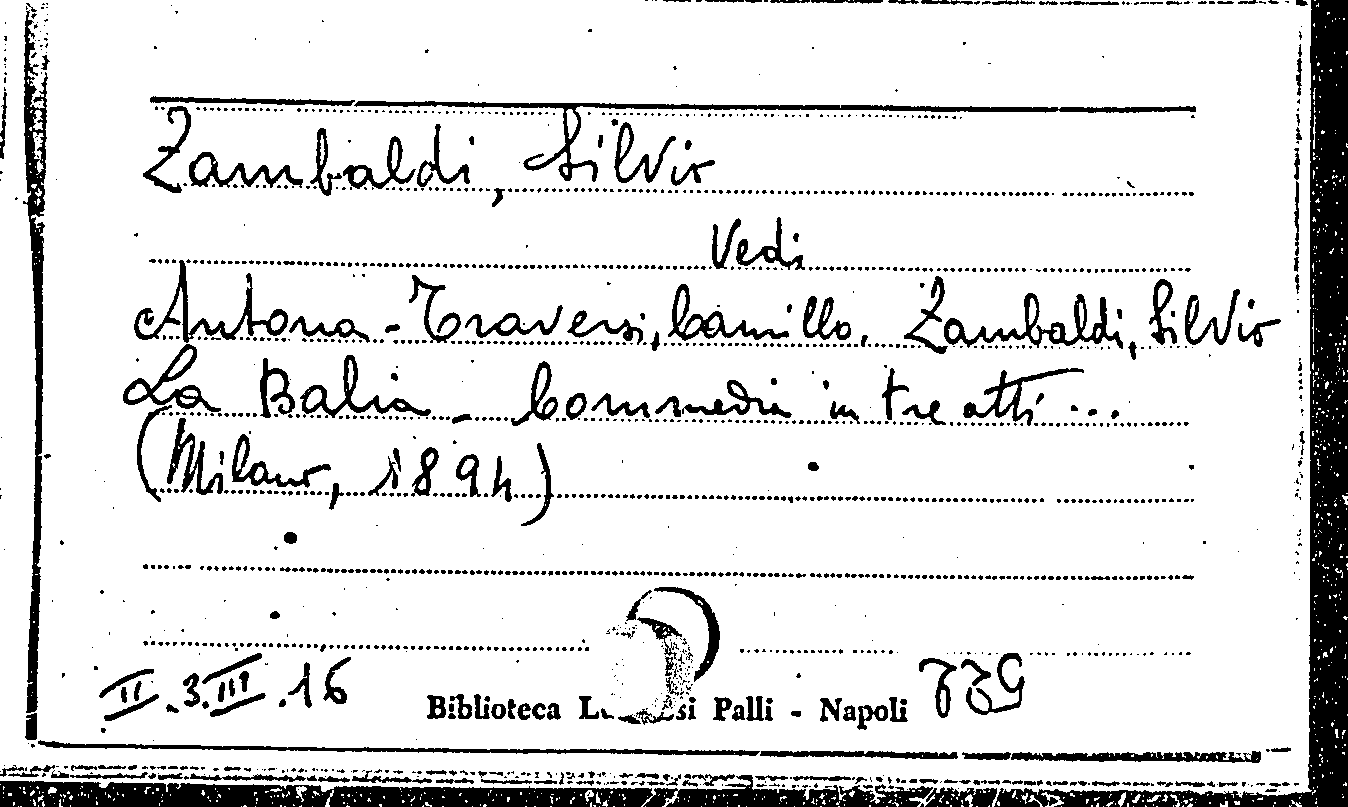 Zambaldi, Silvio
Vedi
Antona-Traversi, Camillo. Zambaldi, Silvio
La Balia - Commedia in tre atti...
(Milano, 1894)
II.3.III.16
Biblioteca Palli - Napoli